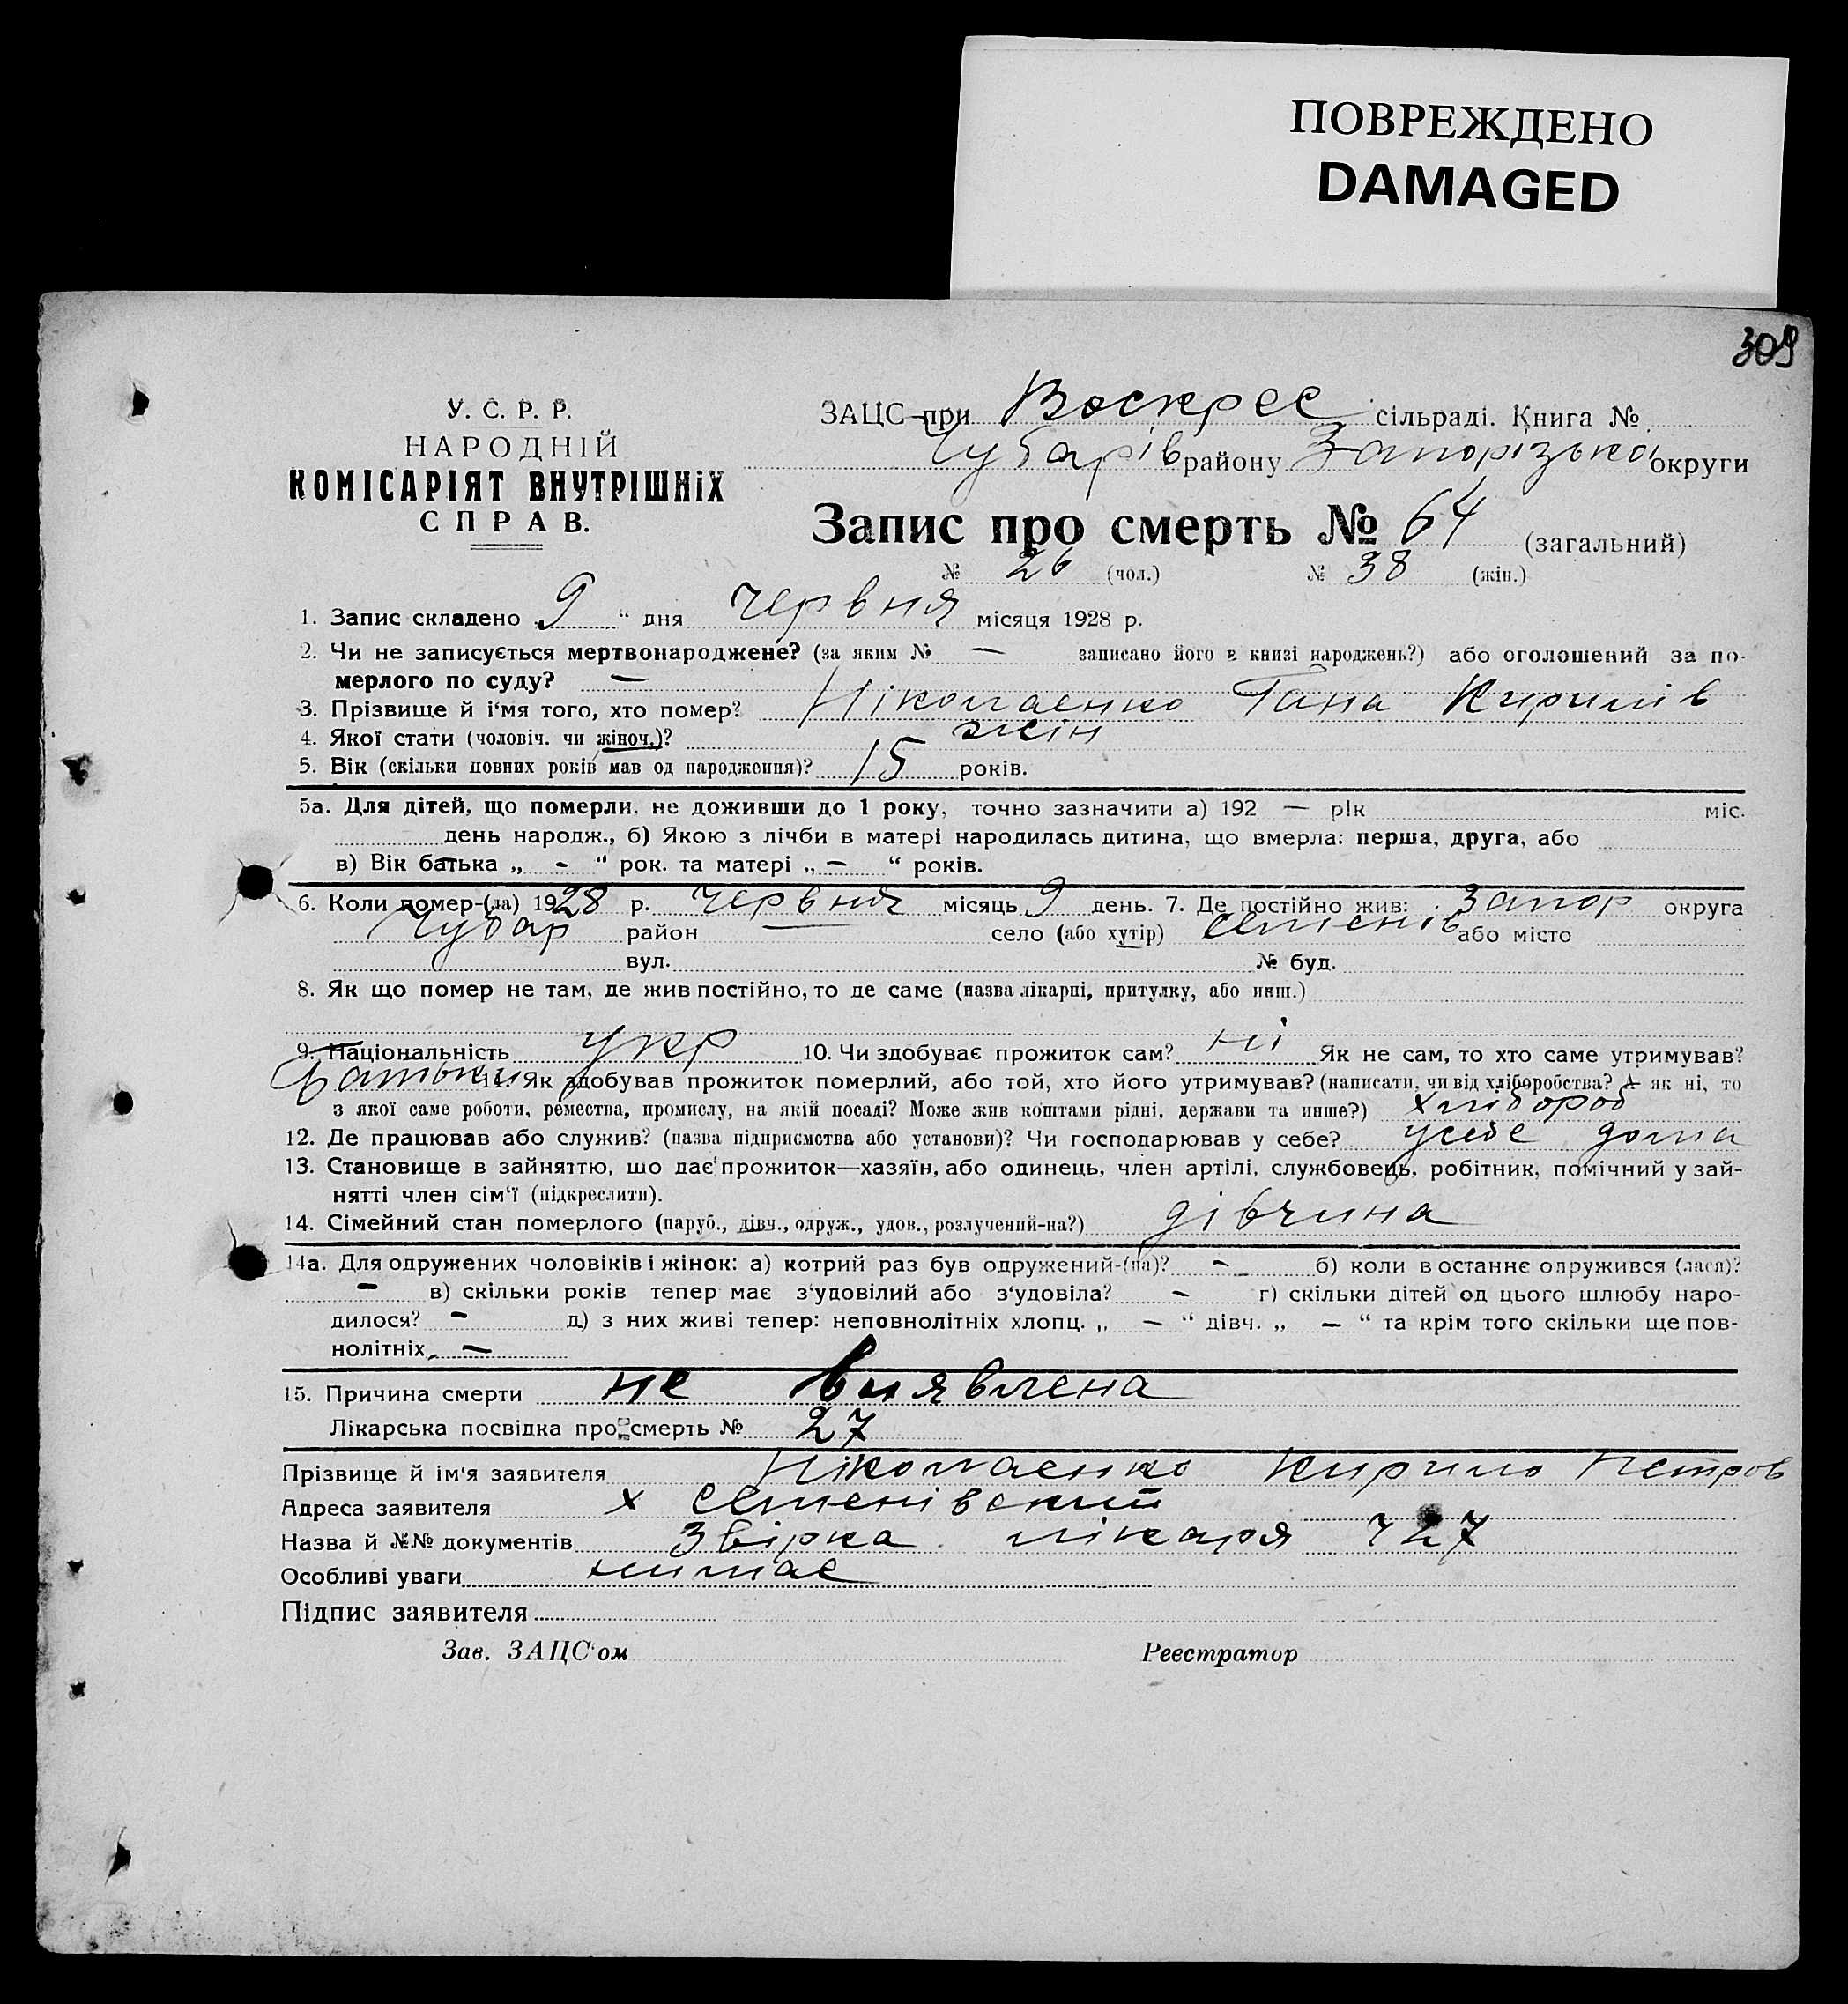 ПОВРЕЖДЕНО
DAMAGED
309
У. С. Р. Р.
НАРОДНІЙ
КОМІСАРІЯТ ВНУТРІШНІХ
СПРАВ.
ЗАЦС при Воскрес сільраді. Книга №
Чубарів району Запорізької округи
Запис про смерть № 64 (загальний)
№ 26 (чол.) № 38 (жін.)
1. Запис складено 9 “ дня червня місяця 1928 р.
2. Чи не записується мертвонароджене? (за яким № — записано його в книзі народжень?) або оголошений за по-
мерлого по суду? —
3. Прізвище й і‘мя того, хто помер? Ніколаенко Гана Кирилів
4. Якої стати (чоловіч. чи жіноч.)? жін
5. Вік (скільки повних років мав од народження)? 15 років.
5а. Для дітей, що померли, не доживши до 1 року, точно зазначити а) 192 — рік міс.
день народж., б) Якою з лічби в матері народилась дитина, що вмерла: перша, друга, або
в) Вік батька „ - “ рок. та матері „ — “ років.
6. Коли помер-(ла) 1928 р. червня місяць 9 день. 7. Де постійно жив: Запор округа
Чубар район — село (або хутір) Семенів або місто
вул. № буд.
8. Як що помер не там, де жив постійно, то де саме (назва лікарні, притулку, або инш.)
9. Національність укр 10. Чи здобуває прожиток сам? ні Як не сам, то хто саме утримував?
батьки 11. Як здобував прожиток померлий, або той, хто його утримував? (написати, чи від хліборобства? А як ні, то
з якої саме роботи, ремества, промислу, на якій посаді? Може жив коштами рідні, держави та инше?) хлибороб
12. Де працював або служив? (назва підприємства або установи)? Чи господарював у себе? усебе дома
13. Становище в зайняттю, що дає прожиток—хазяїн, або одинець, член артілі, службовець, робітник, помічний у зай-
нятті член сім‘ї (підкреслити).
14. Сімейний стан померлого (паруб., дівч., одруж., удов., розлучений-на?) дівчина
14а. Для одружених чоловіків і жінок: а) котрий раз був одружений-(на)? — б) коли в останнє одружився (лася)?
— в) скільки років тепер має з‘удовілий або з‘удовіла? — г) скільки дітей од цього шлюбу наро-
дилося? — д) з них живі тепер: неповнолітніх хлопц. „ — “ дівч. „ — “ та крім того скільки ще пов-
нолітніх —
15. Причина смерти не виявлена
Лікарська посвідка про смерть № 27
Прізвище й ім‘я заявителя Ніколаенко Кирило Петров
Адреса заявителя х Семенівский
Назва й №№ документів Звірка лікаря ч 27
Особливі уваги нимае
Підпис заявителя
Зав. ЗАЦС‘ом Реєстратор